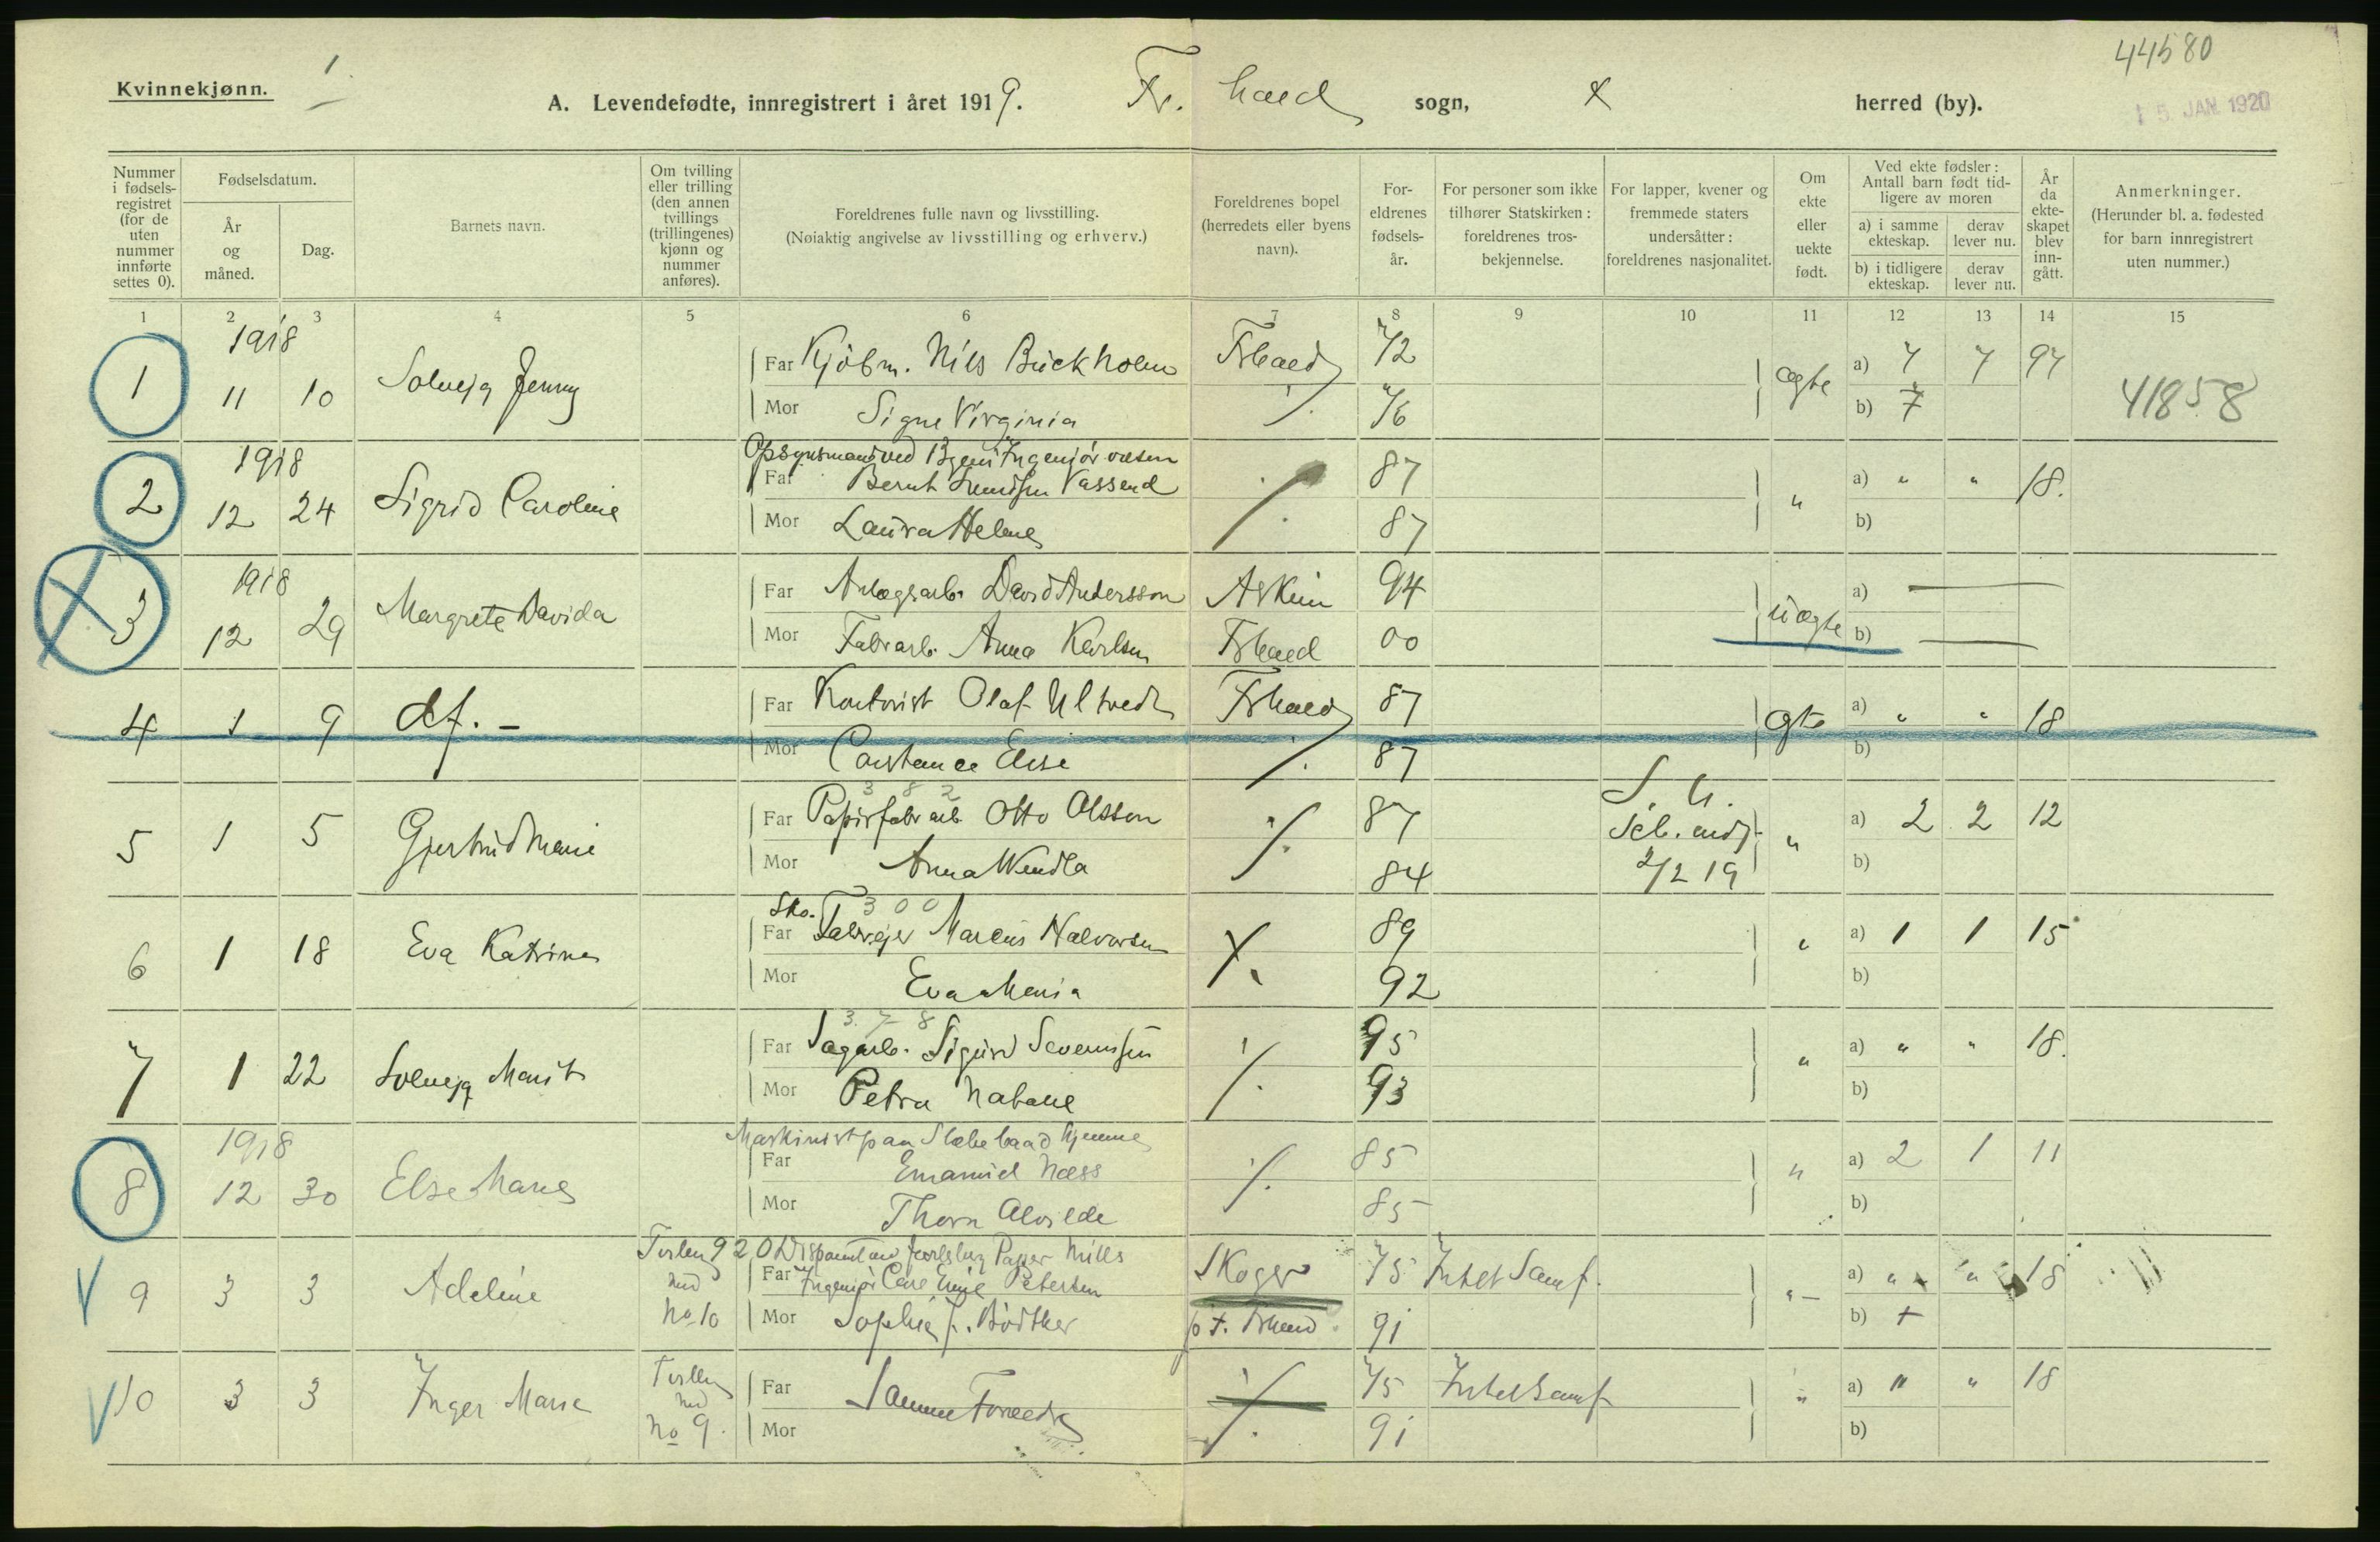 44580
Kvinnekjønn.
1
A. Levendefødte, innregistrert i året 1919. Fr. hald sogn, X herred (by).
15. JAN. 1920
Nummer i fødselsregistret (for de uten nummer innførte settes 0).
Fødselsdatum.
År og måned.
Dag.
Barnets navn.
Om tvilling eller trilling (den annen tvillings (trillingenes) kjønn og nummer anføres).
Foreldrenes fulle navn og livsstilling.
(Nøiaktig angivelse av livsstilling og erhverv.)
Foreldrenes bopel (herredets eller byens navn).
For-eldrenes fødsels-år.
For personer som ikke tilhører Statskirken: foreldrenes tros-bekjennelse.
For lapper, kvener og fremmede staters undersåtter: foreldrenes nasjonalitet.
Om ekte eller uekte født.
Ved ekte fødsler: Antall barn født tid-ligere av moren
a) i samme ekteskap.
derav lever nu.
b) i tidligere ekteskap.
derav lever nu.
År da ekte-skapet blev inn-gått.
Anmerkninger.
(Herunder bl. a. fødested for barn innregistrert uten nummer.)
1 2 3 4 5 6 7 8 9 10 11 12 13 14 15
1918
1 11 10 Solveig Jenny Far Kjøbm. Nils Buckholm Frhald 72 ægte a) 7 7 97
Mor Signe Virginia ./. 76 b) 7 41858
1918 Opsynsmand ved Byens Ingeniørvæsen
2 12 24 Sigrid Caroline Far Bernt Vassend ./. 87 " a) " " 18.
Mor Laura Helene 87 b)
1918
3 12 29 Margrete Davida Far Anlægsarb. David Andersson Askim 94 uægte a) —
Mor Fabrarb. Anna Karlsen Frhald 00 b) —
4 1 9 df. - Far Kontorist Olaf Ultvedt Frhald 87 ægte a) " " 18
Mor Constance Elise ./. 87 b)
382 S. U.
5 1 5 Gjertrud Marie Far Papirfabrarb Otto Olsson ./. 87 " a) 2 2 12
Mor Anna Wendla 84 2/2 19 b)
Sko. 300
6 1 18 Eva Katrine Far Fabrejer Marius Halvorsen ./. 89 " a) 1 1 15
Mor Eva Maria 92 b)
378
7 1 22 Solveig Marit Far Sagarb. Sigurd Severinsen ./. 95 " a) " " 18.
Mor Petra Natalie 93 b)
1918 Maskinist paa Slæbebaad hjemme
8 12 30 Else Marie Far Emanuel Næss ./. 85 " a) 2 1 11
Mor Thora Alvilde 85 b)
920 Disponent Paper Mills
9 3 3 Adeline Tvilling med No 10 Far Ingeniør Carl Emil Petersen Skoger 75 Intet Samf. " - a) " " 18
Mor Sophie J. Bødtker p. t. Frhald 91 b) +
10 3 3 Inger Marie Tvilling med No 9. Far Samme Forældre ./. 75 Intet Samf " a) " " 18
Mor 91 b)